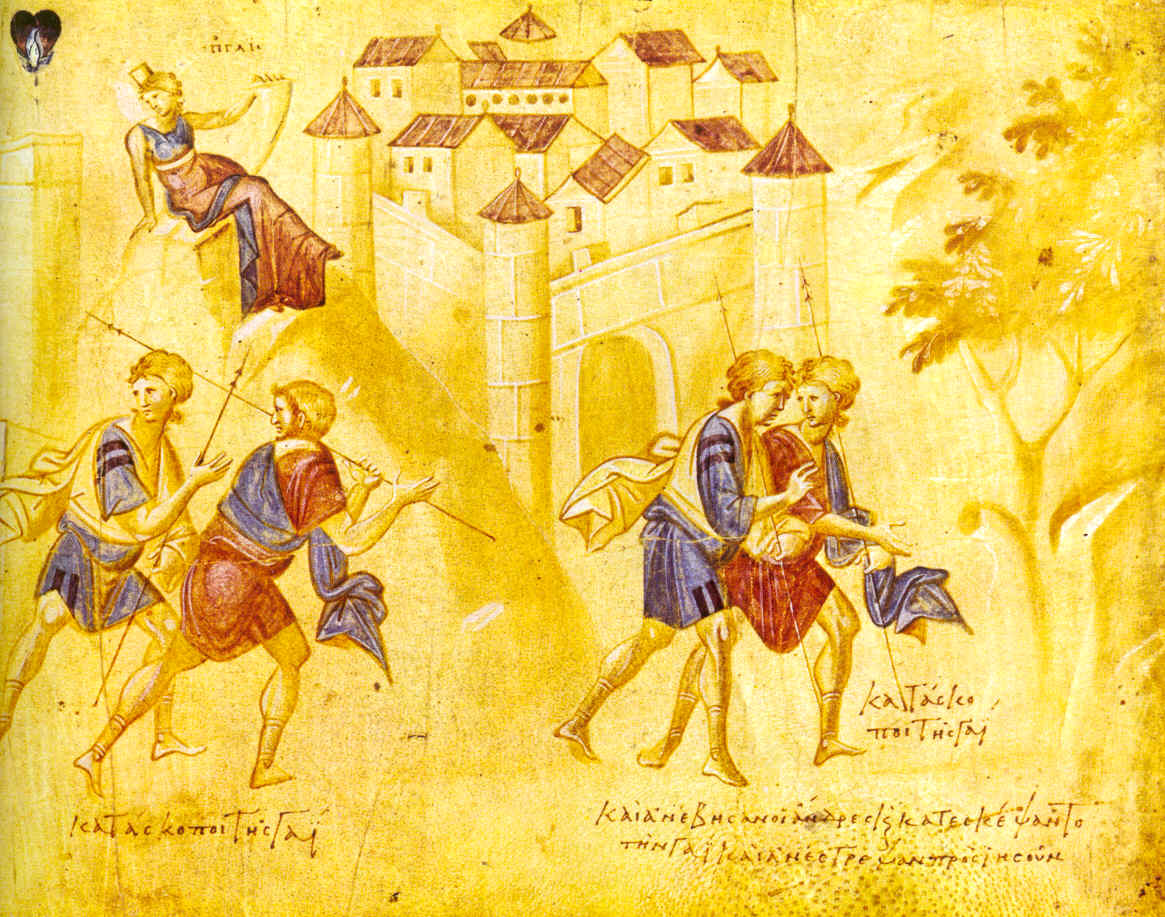 ΓΑΙ
κατάσκο
ποι τῆς Γαΐ
κατάσκοποι τῆς Γαΐ
καὶ ἀνέβησαν οἱ ἄνδρες κ κατεσκέψαντο
τὴν Γαΐ καὶ ἀνέστρεψαν πρὸς ιησοῦν